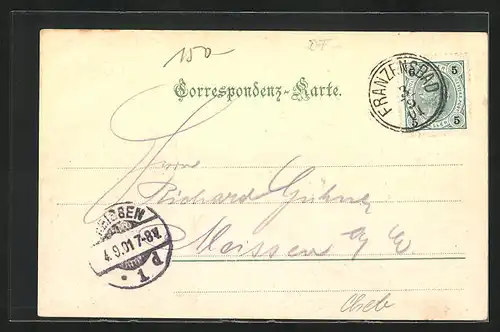 150
Correspondenz-Karte.
FRANZENSBAD
5 5
5 5
Herrn
Richard
Meissen a/E.
MEISSEN
4.9.01 7-8V.
Cheb